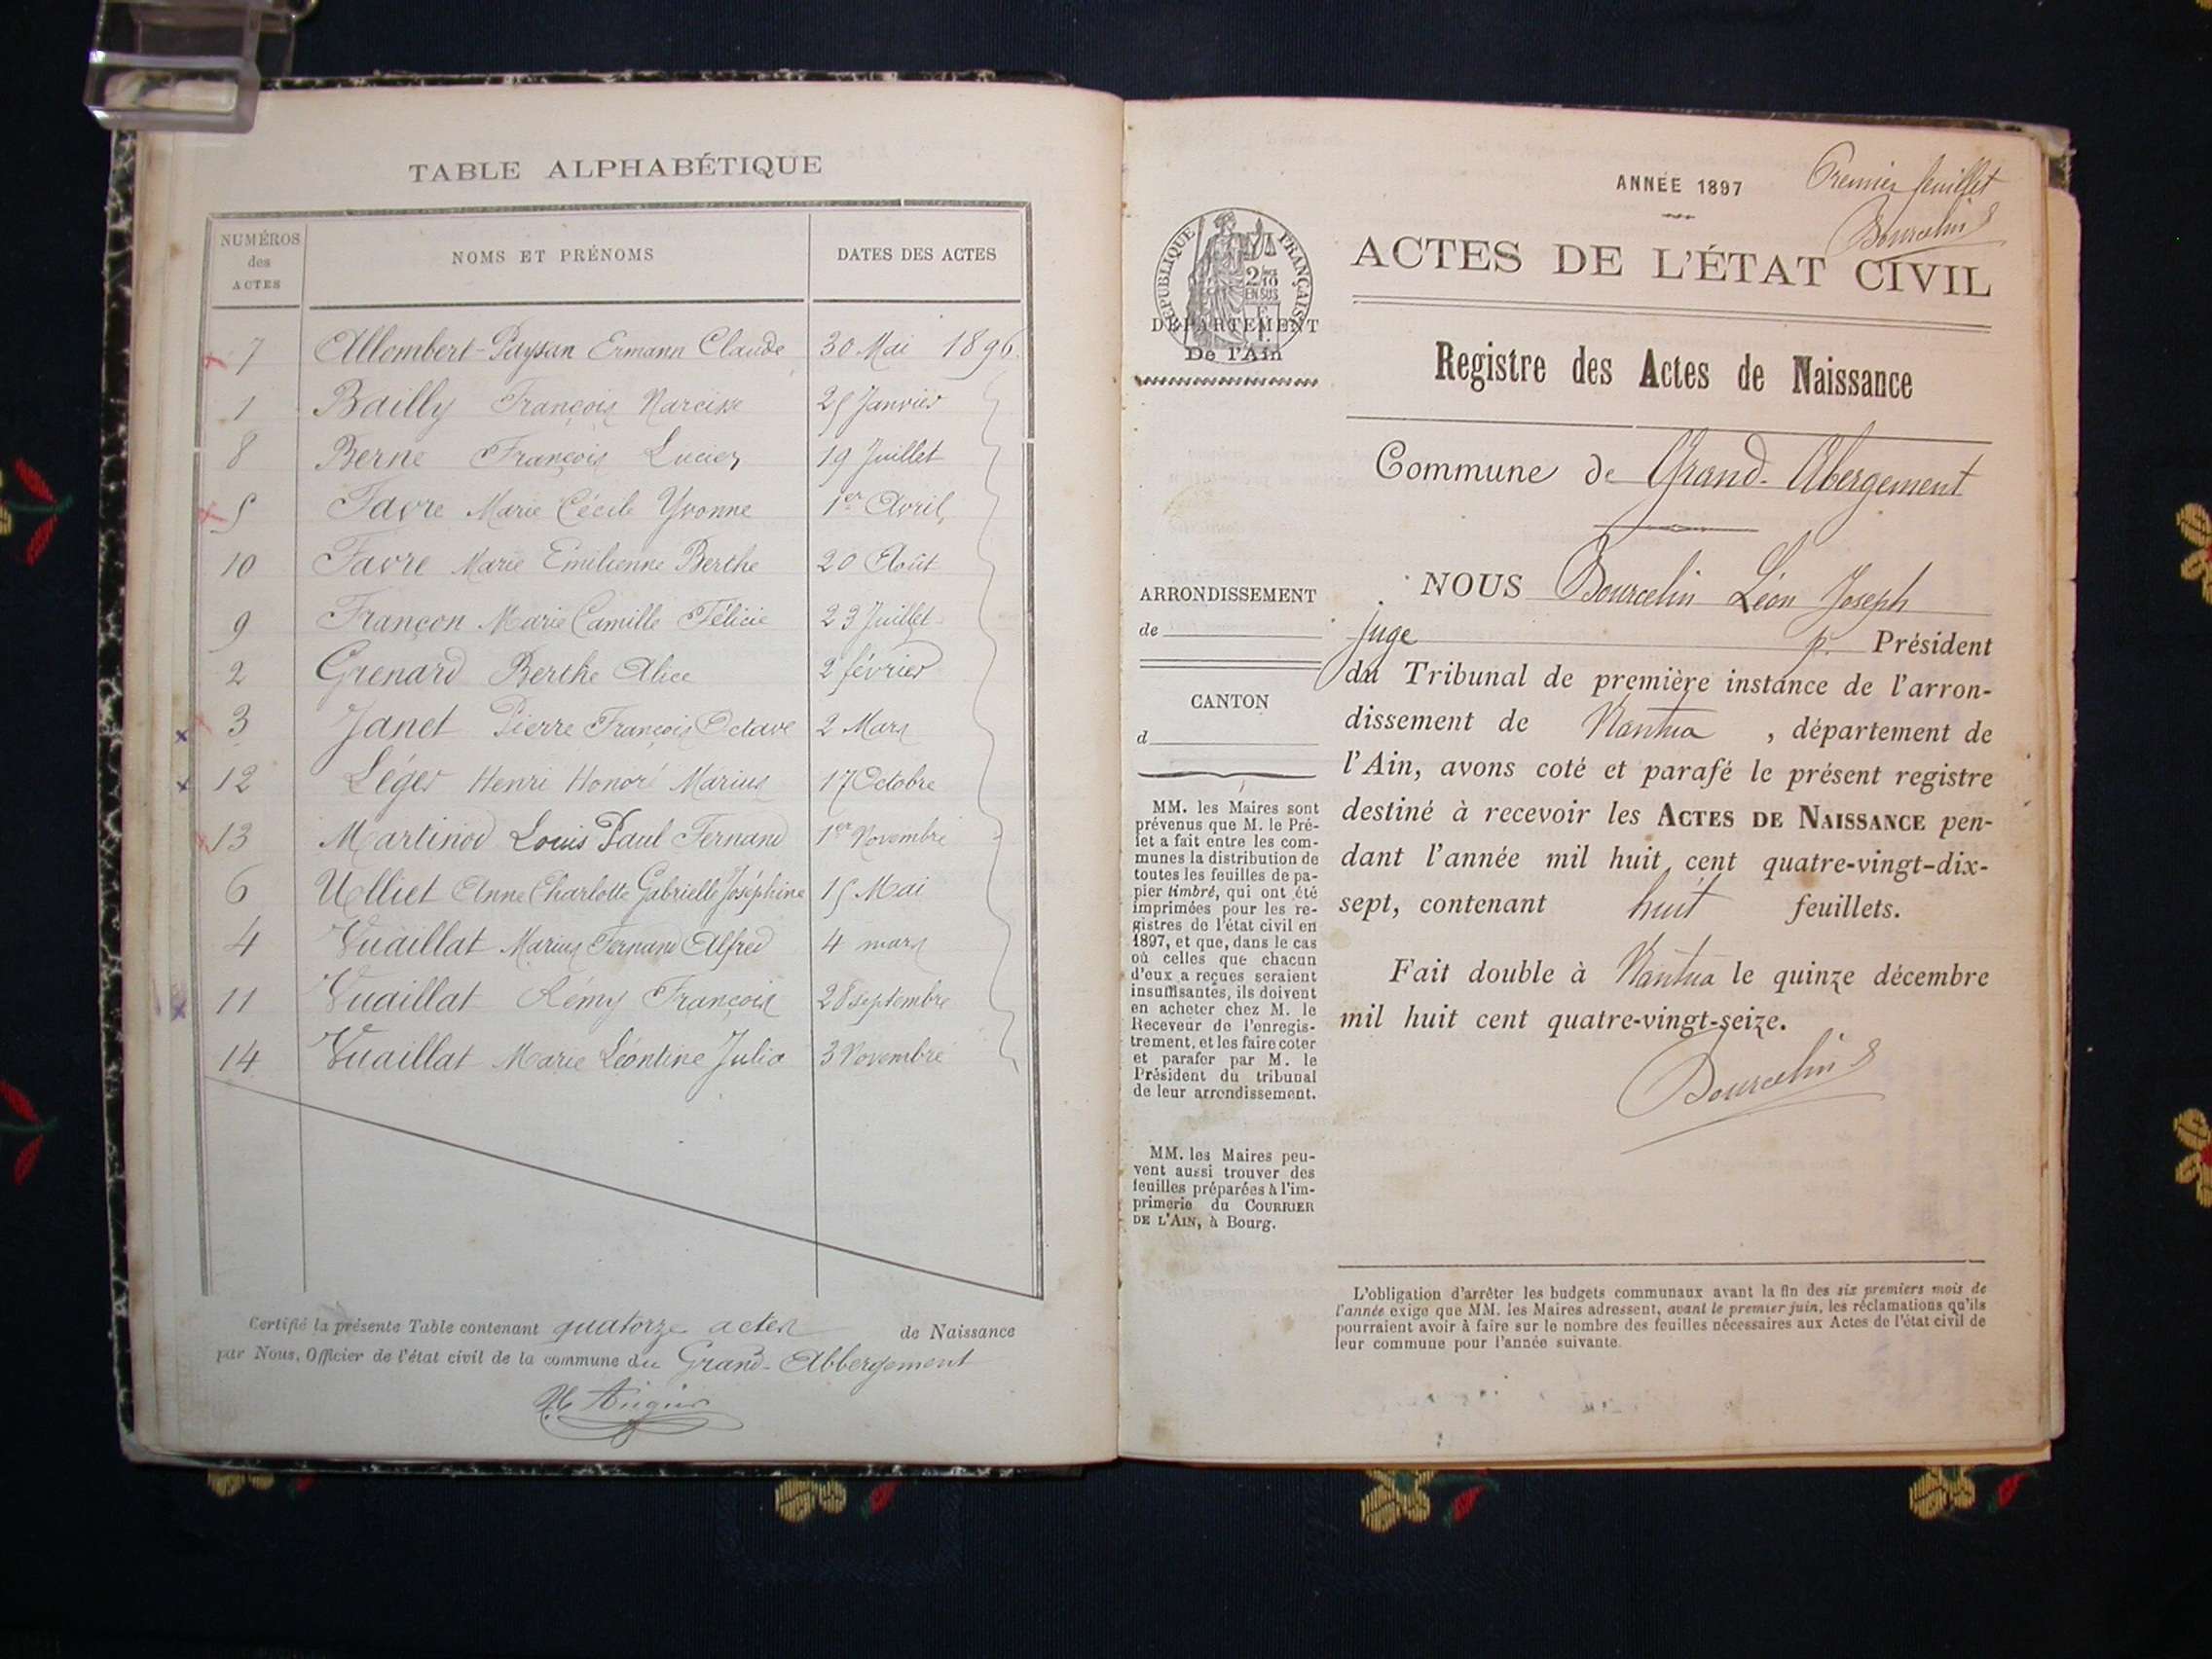 TABLE ALPHABÉTIQUE
NUMÉROS des ACTES NOMS ET PRÉNOMS DATES DES ACTES
7 Allombert-Paysan Ermann Claude 30 Mai 1896
1 Bailly François Narcisse 25 Janvier
8 Berne François Lucien 19 Juillet
5 Favre Marie Cécile Yvonne 1er Avril
10 Favre Marie Emilienne Berthe 20 Août
9 Françon Marie Camille Félicie 23 Juillet
2 Grenard Berthe Alice 2 février
3 Janet Pierre François Octave 2 Mars
12 Léger Henri Honoré Marius 17 Octobre
13 Martinod Louis Paul Fernand 1er Novembre
6 Ulliet Anne Charlotte Gabrielle Joséphine 15 Mai
4 Vuaillat Marius Fernand Alfred 4 mars
11 Vuaillat Rémy François 28 septembre
14 Vuaillat Marie Léontine Julia 3 Novembre
Certifié la présente Table contenant quatorze actes de Naissance
par Nous, Officier de l'état civil de la commune du Grand-Abbergement
ANNÉE 1897 Premier feuillet
Bourcelin
RÉPUBLIQUE FRANÇAISE
2/10
EN SUS
ACTES DE L'ÉTAT CIVIL
DÉPARTEMENT
De l'Ain
Registre des Actes de Naissance
Commune de Grand-Abergement
ARRONDISSEMENT
de
CANTON
d
NOUS Bourcelin Léon Joseph
juge p. Président
du Tribunal de première instance de l'arron-
dissement de Nantua, département de
l'Ain, avons coté et parafé le présent registre
destiné à recevoir les ACTES DE NAISSANCE pen-
dant l'année mil huit cent quatre-vingt-dix-
sept, contenant huit feuillets.
Fait double à Nantua le quinze décembre
mil huit cent quatre-vingt-seize.
Bourcelin
MM. les Maires sont
prévenus que M. le Pré-
fet a fait entre les com-
munes la distribution de
toutes les feuilles de pa-
pier timbré, qui ont été
imprimées pour les re-
gistres de l'état civil en
1897, et que, dans le cas
où celles que chacun
d'eux a reçues seraient
insuffisantes, ils doivent
en acheter chez M. le
Receveur de l'enregis-
trement, et les faire coter
et parafer par M. le
Président du tribunal
de leur arrondissement.
MM. les Maires peu-
vent aussi trouver des
feuilles préparées à l'im-
primerie du COURRIER
DE L'AIN, à Bourg.
L'obligation d'arrêter les budgets communaux avant la fin des six premiers mois de
l'année exige que MM. les Maires adressent, avant le premier juin, les réclamations qu'ils
pourraient avoir à faire sur le nombre des feuilles nécessaires aux Actes de l'état civil de
leur commune pour l'année suivante.